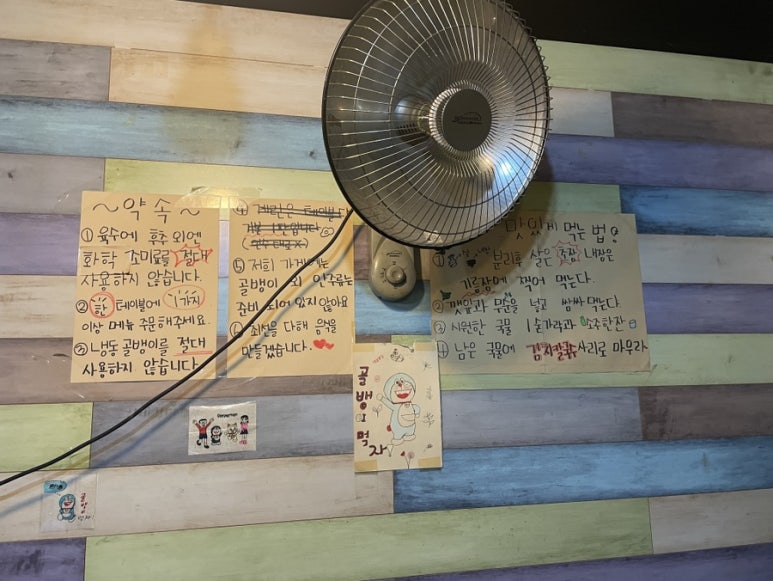 ~ 약속 ~
① 육수에 후추 외에
화학 조미료를 절대
사용하지 않습니다.
② 한 테이블에 1가지
이상 메뉴 주문해주세요.
③ 냉동 골뱅이를 절대
사용하지 않습니다
④ 계란은 테이블당
⑤ 저희 가게에는
골뱅이 외 안주류는
준비 되어 있지 않아요
최선을 다해 음식을
만들겠습니다.
맛있게 먹는 법
① 분리후 살은 초장, 내장은
기름장에 찍어 먹는다.
② 깻잎과 무순을 넣고 쌈싸 먹는다.
③ 시원한 국물 1숟가락과 소주한잔
④ 남은 국물에 김치칼국수사리로 마무리
골뱅이 먹자